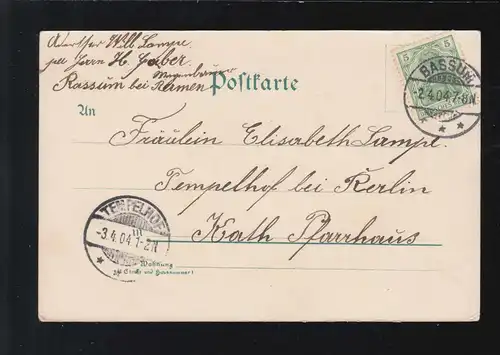 Will. Lampe.
per Herrn H. Gaber
Wagenbauer
Bassum bei Bremen
Postkarte
An
Fräulein Elisabeth Lampe.
Tempelhof bei Berlin
Kath Pfarrhaus
Wohnung
(Straße und Hausnummer)
5 5
BASSUM
2.4.04.7-8N
TEMPELHOF
-3.4.04 1-2N